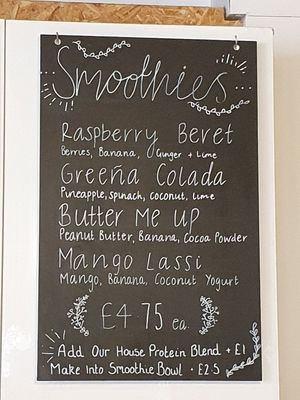 Smoothies
Raspberry Beret
Berries, Banana, Ginger + Lime
Greena Colada
Pineapple, spinach, coconut, lime
Butter Me Up
Peanut Butter, Banana, Cocoa Powder
Mango Lassi
Mango, Banana, Coconut Yogurt
£4 75 ea.
Add Our House Protein Blend + £1
Make Into Smoothie Bowl + £2.5